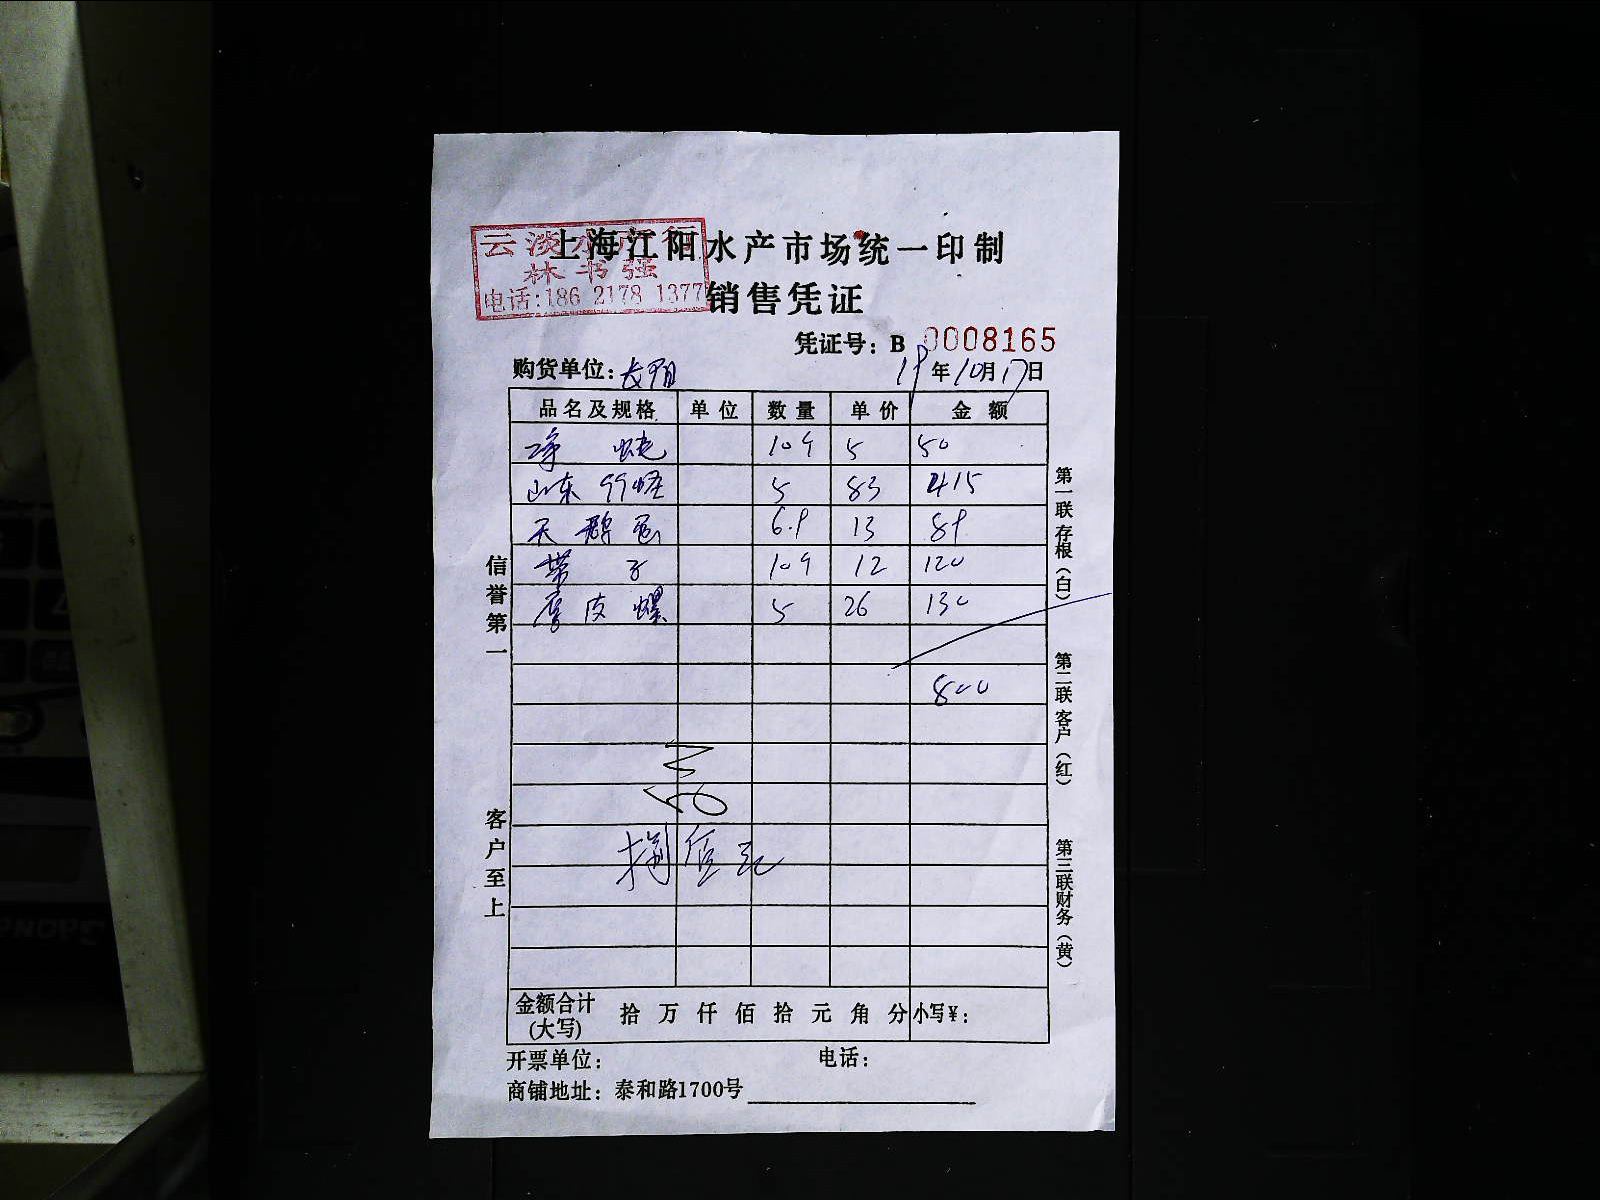 云淡水产行
林书强
电话:186 2178 1377
上海江阳水产市场统一印制
销售凭证
凭证号：B 0008165
购货单位：
19年10月17日
品名及规格 单位 数量 单价 金额
净 10斤 5 50
山东 5 83 415
天鹅 6.9 13 89
带子 10斤 12 120
皮螺 5 26 130
800
捌佰元
信誉第一
客户至上
第一联存根（白）
第二联客户（红）
第三联财务（黄）
金额合计(大写) 拾 万 仟 佰 拾 元 角 分 小写¥：
开票单位： 电话：
商铺地址：泰和路1700号